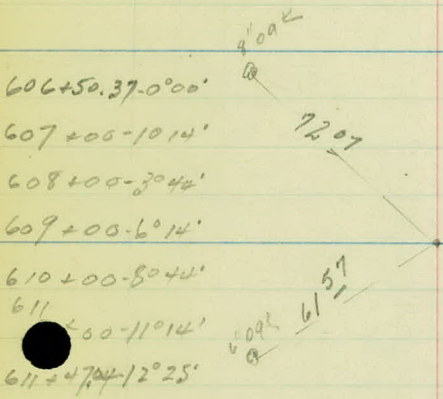 606+50.37-0°00'
607+00-1°14'
608+00-3°44'
609+00-6°14'
610+00-8°44'
611
+00-11°14'
611+47.04-12°25'
7207
6157